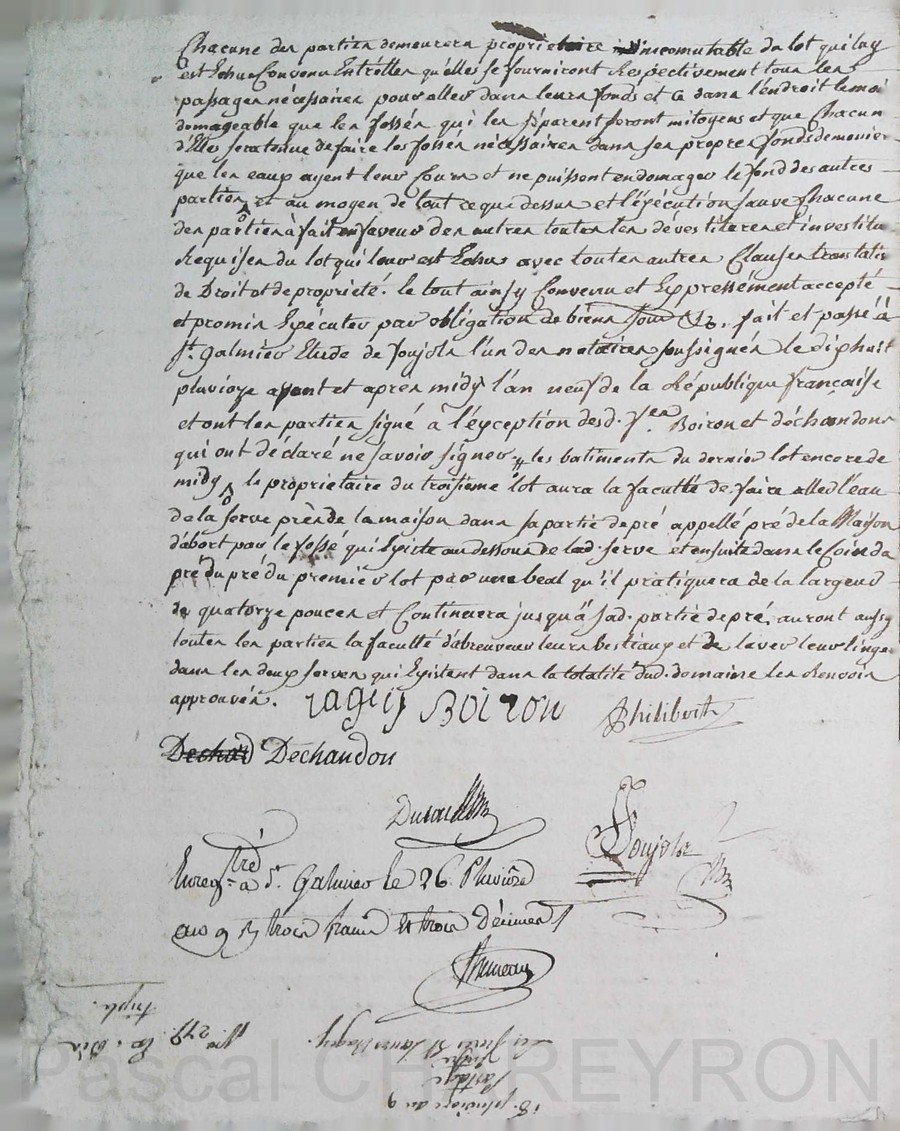 Chacune des parties demeurera propriétaire incomutable du lot qui luy
est Echu Convenu Entrelles qu'elles se fourniront Respectivement tous les
passages nécessaires pour aller dans leurs fonds et ce dans l'endroit le moins
domageable que les fossés qui les séparent seront mitoyens et que Chacun
d'Elles sera tenue de faire les fosses nécéssaires dans ses propres fonds de manier
que les eaux ayent leur Cours et ne puissent endomager le fond des autres
parties, et au moyen de tout ce que dessus et l'éxécution sauve Chacune
des parties à fait en faveur des autres toutes les dévestitures et investitu
Requises du lot qui leur est Echu avec toutes autres Clauses translativ
de Droit et de propriété. le tout ainsy Convenu et Expressément accepté
et promis Exécuter par obligation de biens Soum &a. fait et passé à
St. galmier Etude de Soujols l'un des notaires soussignés le dixhuit
pluvioze avant et après midy l'an neuf de la République française
et ont les parties signé à l'éxception desd. Boiron et déchandons
qui ont déclaré ne savoir signer les batiments du dernier lot encore de
midy le propriétaire du troisieme lot aura la faculté de faire aller l'eau
de la serve près de la maison dans sa partie de pré appellé pré de la Maison
d'abort par le fossé qui Existe au dessous de lad. serve et ensuite dans le Coin du
pré du pré du premier lot par une beal qu'il pratiquera de la largeur
de quatorze pouces et Continuera jusqu'à sad. partie de pré. auront aussy
toutes les parties la faculté d'abreuver leurs bestiaux et de laver leur linge
dans les deux serves qui Existent dans la totalité dud. domaine les Renvois
approuvés. raguy Boiron Philiberte
Dechad Dechandon
Soujols
Enregtré à St. Galmier le 26 Pluviôse
an 9 R trois francs et trois décimes
18. pluvioze an 9
Partage
Entre
No. 279
triple.